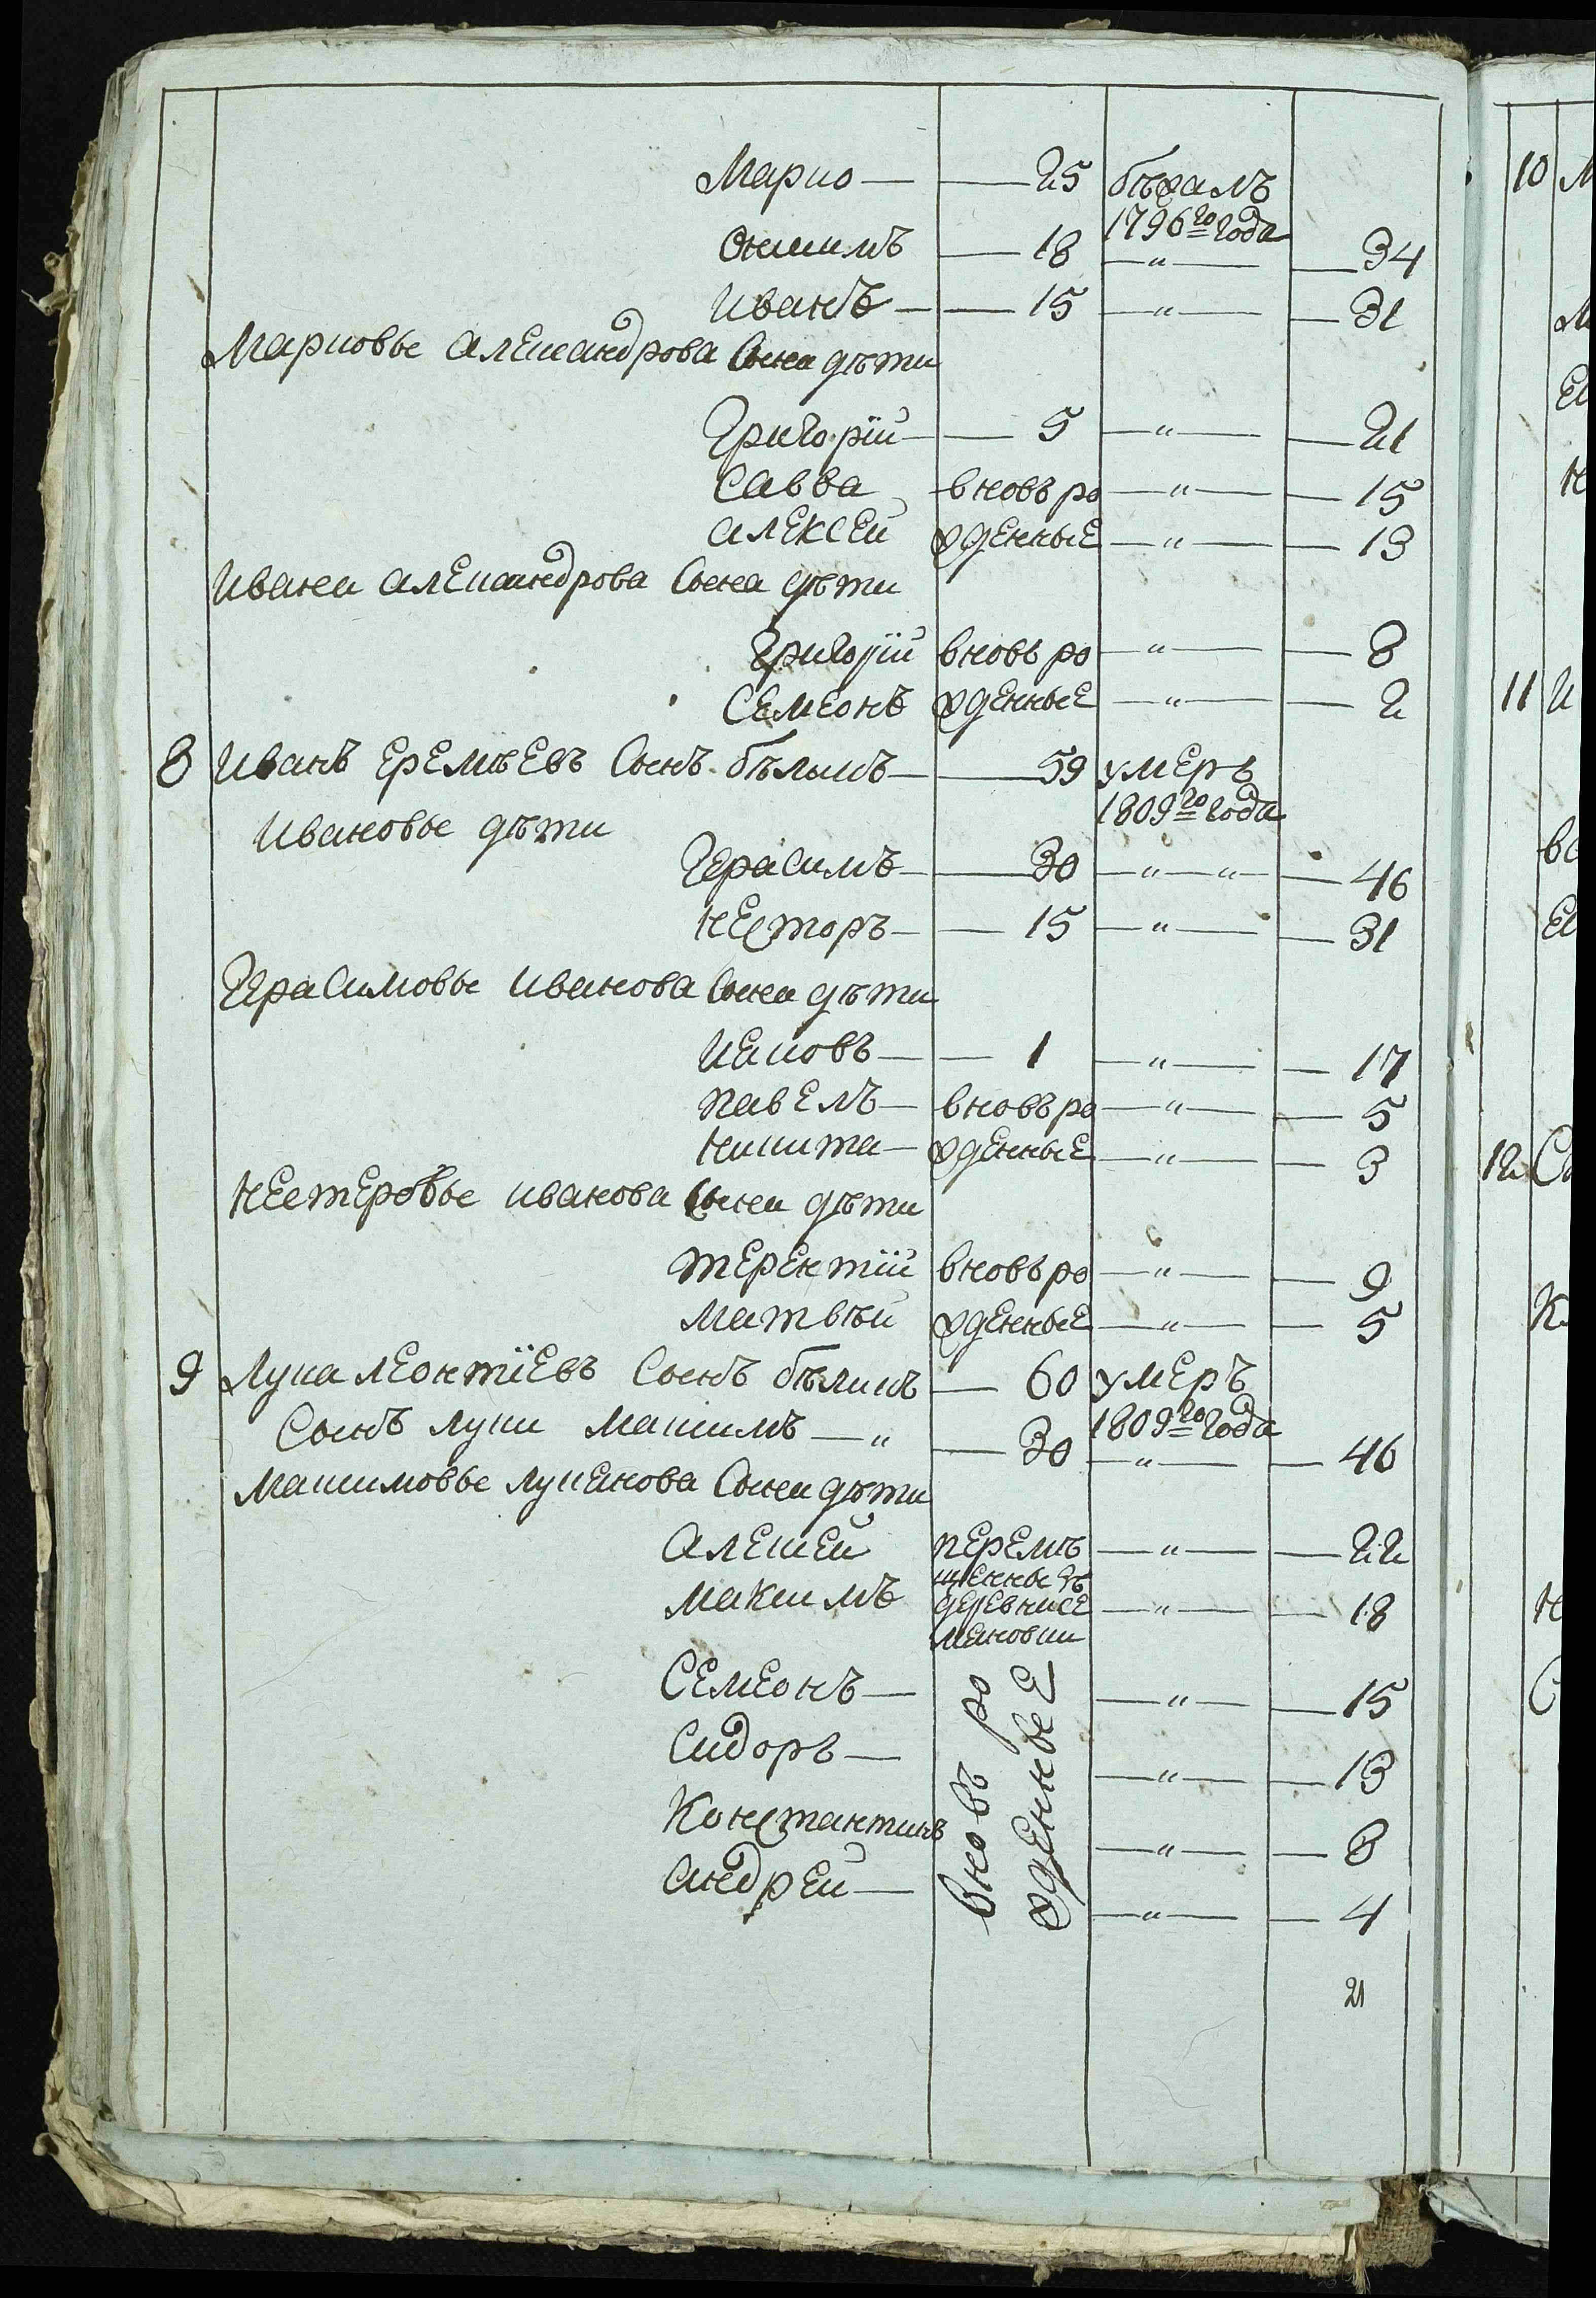 Марко — 25 бѣжалъ
1796го года
Онисимъ — 18 — " — 34
Иванъ — 15 — " — 31
Марковы Александрова сына дѣти
Григорій — 5 — " — 21
Савва вновь ро — " — 15
Алексей жденные — " — 13
Ивана Александрова сына дѣти
Григорій вновь ро — " — 8
Семенъ жденные — " — 2
8 Иванъ Еремѣевъ сынъ — 59 умеръ
1809го года
Ивановы дѣти
Герасимъ — 30 — " — " — 46
Несторъ — 15 — " — 31
Герасимовы Иванова сына дѣти
Иаковъ — 1 — " — 17
Павелъ — вновь ро — " — 5
Никита — жденные — " — 3
Нестеровы Иванова сына дѣти
Терентій вновь ро — " — 9
Матвѣй жденные — " — 5
9 Лука Леонтіевъ сынъ — 60 умеръ
1809го года
Сынъ Луки Максимъ — " — 30 — " — 46
Максимовы Луканова сына дѣти
Алексей перемѣ — " — 22
щенные
Максимъ деревни Се — " — 18
Семенъ — вновь ро — " — 15
Сидоръ — жденные — " — 13
Константинъ — " — 8
Андрей — " — 4
21
10
11
12